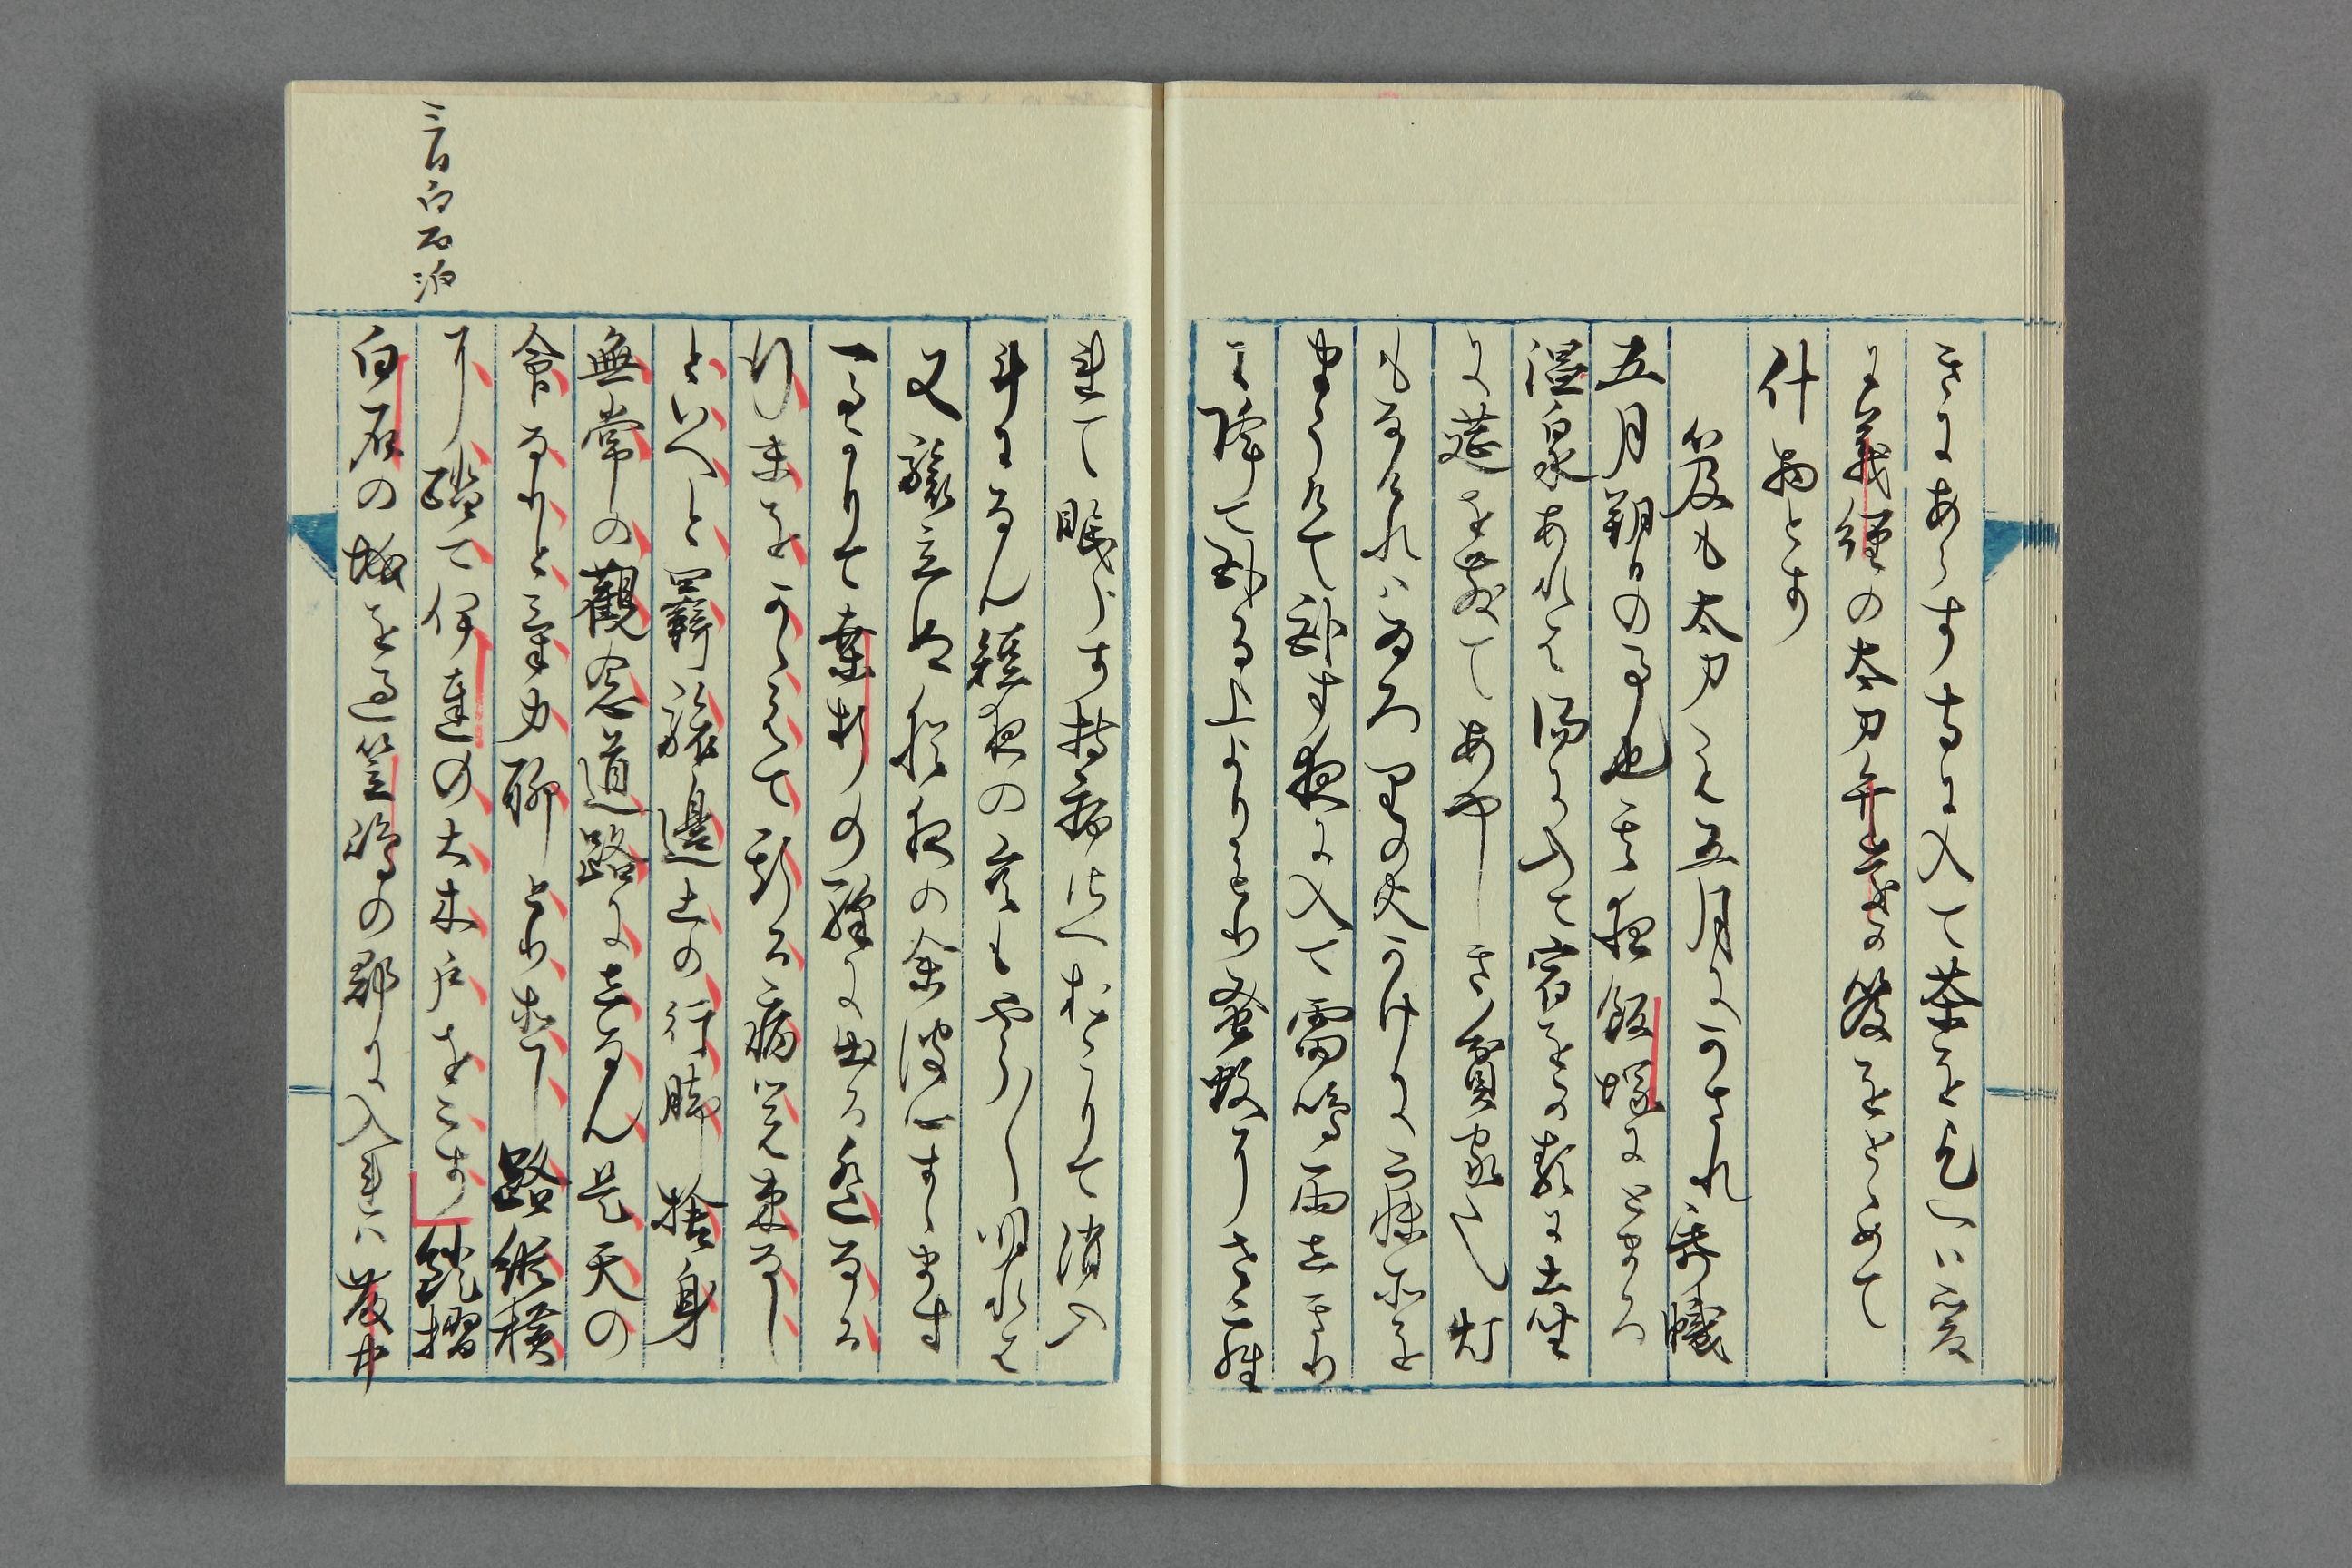 きにあらす寺に入て茶を乞へハ爰
に義経の太刀弁慶か笈をとゝめて
什物とす
笈も太刀も五月にかされ帋幟
五月朔日の事也其夜飯塚にとまる
温泉あれは湯に入て宿をかるに土坐
に莚を敷てあやしき貧家也灯
もなけれハゐろりの火かけに寐所を
まうけて臥す夜に入て雷鳴雨しきり
に降て臥る上よりもり蚤蚊にせゝら
れて眠らす持病さへおこりて消入
斗になん短夜の空もやう〱明れは
又旅立ぬ猶夜の余波心すゝます
馬かりて桑折の驛に出る遥なる
行末をかゝえて斯る病覚束なし
といへと羇旅邊土の行脚捨身
無常の観念道路にしなん是天の
命なりと氣力聊とり直し路縦横
に踏て伊達の大木戸をこす鐙摺
白石の城を過笠嶋の郡に入れハ藤中
三日白石泊